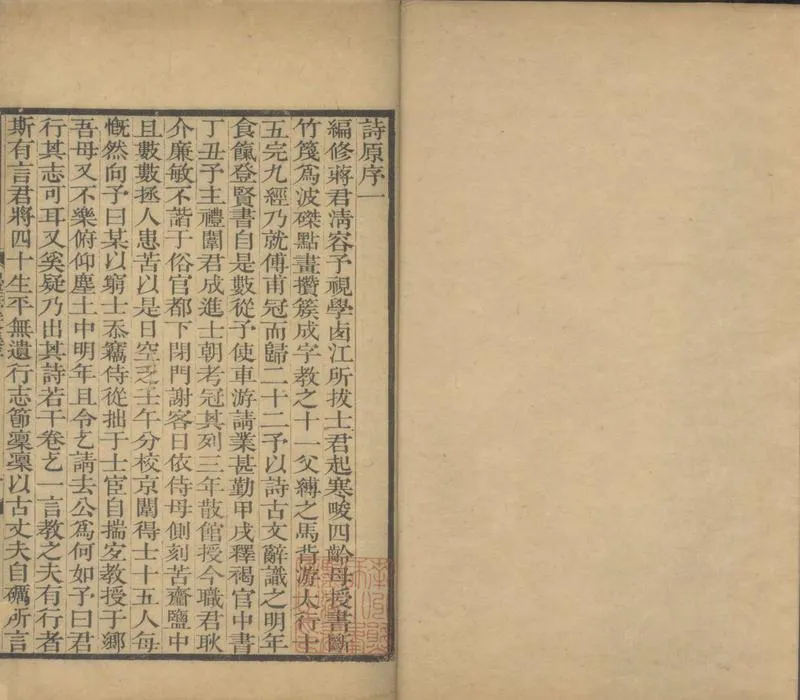 詩原序一
編修蔣君清容予視學鹵江所拔士君起寒畯四齡母授書斷
竹篾爲波磔點畫攢簇成字教之十一父縛之馬背游太行十
五完九經乃就傅甫冠而歸二十二予以詩古文辭識之明年
食餼登賢書自是數從予使車游請業甚勤甲戌釋褐官中書
丁丑予主禮闈君成進士朝考冠其列三年散館授今職君耿
介廉敏不諧于俗官都下閉門謝客日依侍母側刻苦齏鹽中
且數數拯人患苦以是日空乏壬午分校京闈得士十五人每
慨然向予曰某以窮士忝竊侍從拙于士宦自揣安教授于鄉
吾母又不樂俯仰塵土中明年且令乞請去公爲何如予曰君
行其志可耳又奚疑乃出其詩若干卷乞一言教之夫有行者
斯有言君將四十生平無遺行志節稟稟以古丈夫自礪所言